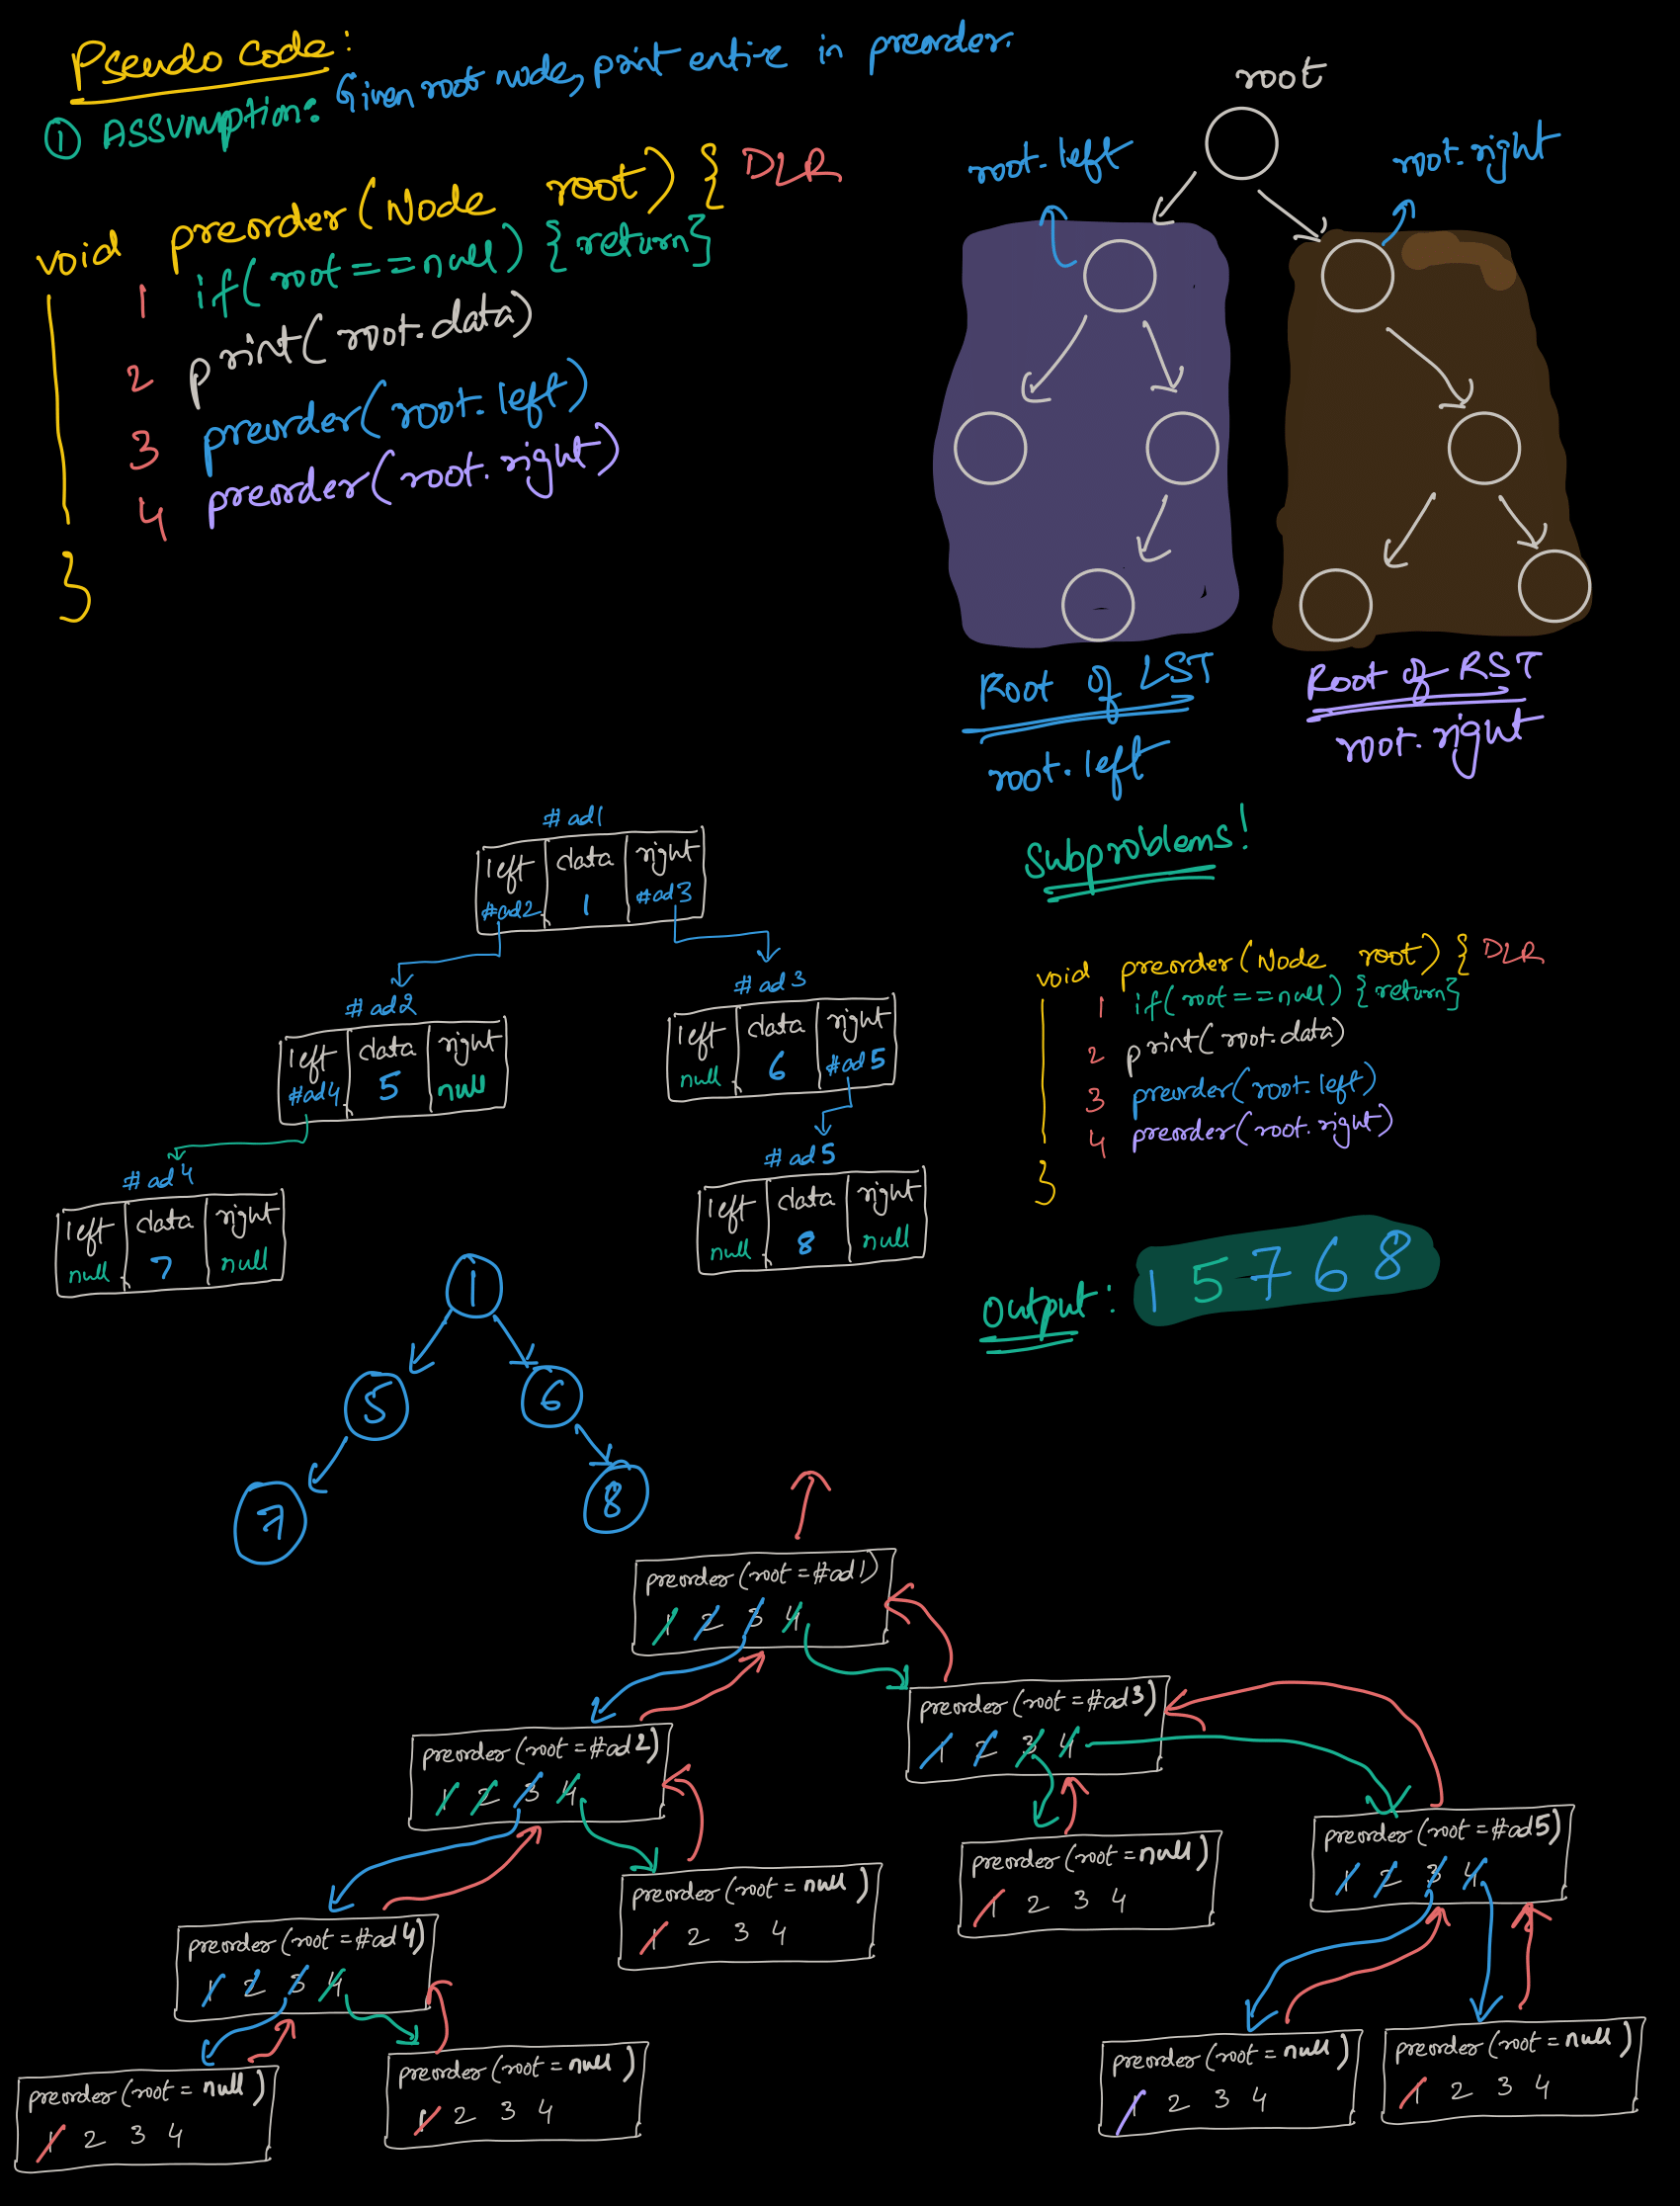 Pseudo Code:
① Assumption: Given root node, print entire in preorder.
void preorder(Node root) { DLR
1 if(root==null) {return}
2 print(root.data)
3 preorder(root.left)
4 preorder(root.right)
}
root
root.left
root.right
Root of LST
root.left
Root of RST
root.right
Subproblems!
#ad1
left data right
#ad2 1 #ad3
#ad2
left data right
#ad4 5 null
#ad3
left data right
null 6 #ad5
#ad4
left data right
null 7 null
#ad5
left data right
null 8 null
void preorder(Node root) { DLR
1 if(root==null) {return}
2 print(root.data)
3 preorder(root.left)
4 preorder(root.right)
}
Output: 1 5 7 6 8
1
5
6
7
8
preorder(root=#ad1)
1 2 3 4
preorder(root=#ad2)
1 2 3 4
preorder(root=#ad3)
1 2 3 4
preorder(root=#ad4)
1 2 3 4
preorder(root=null)
1 2 3 4
preorder(root=null)
1 2 3 4
preorder(root=#ad5)
1 2 3 4
preorder(root=null)
1 2 3 4
preorder(root=null)
1 2 3 4
preorder(root=null)
1 2 3 4
preorder(root=null)
1 2 3 4